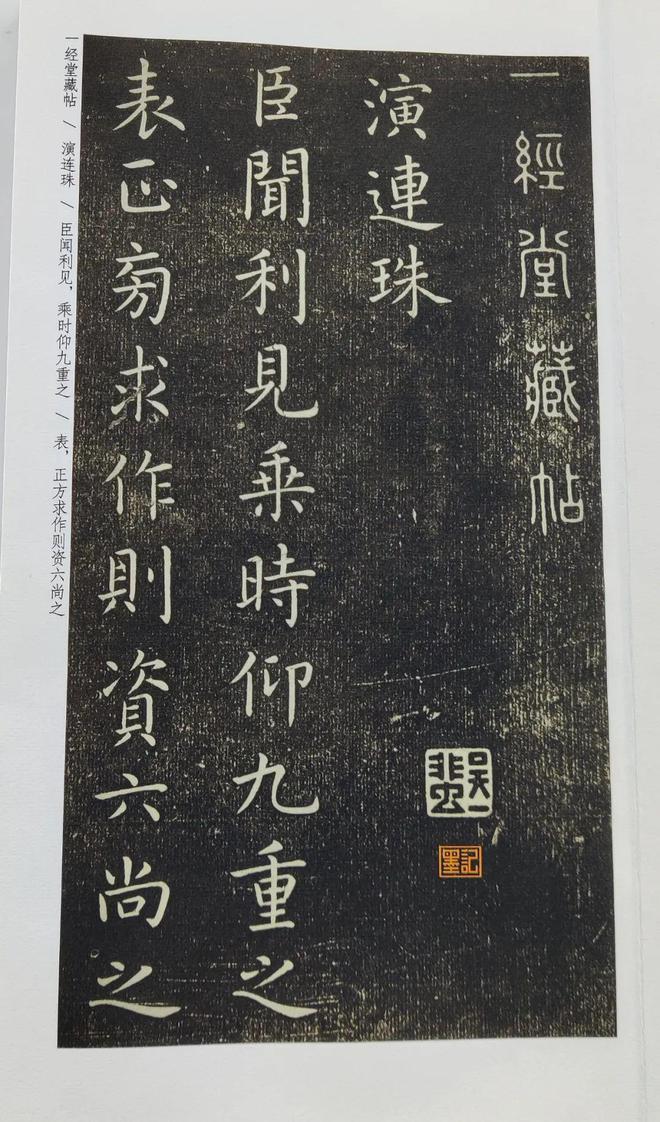 一經堂藏帖
演連珠
臣聞利見乗時仰九重之
表正㫄求作則資六尚之
吳一蜚
墨記
一经堂藏帖 \ 演连珠 \ 臣闻利见，乘时仰九重之 \ 表，正方求作则资六尚之